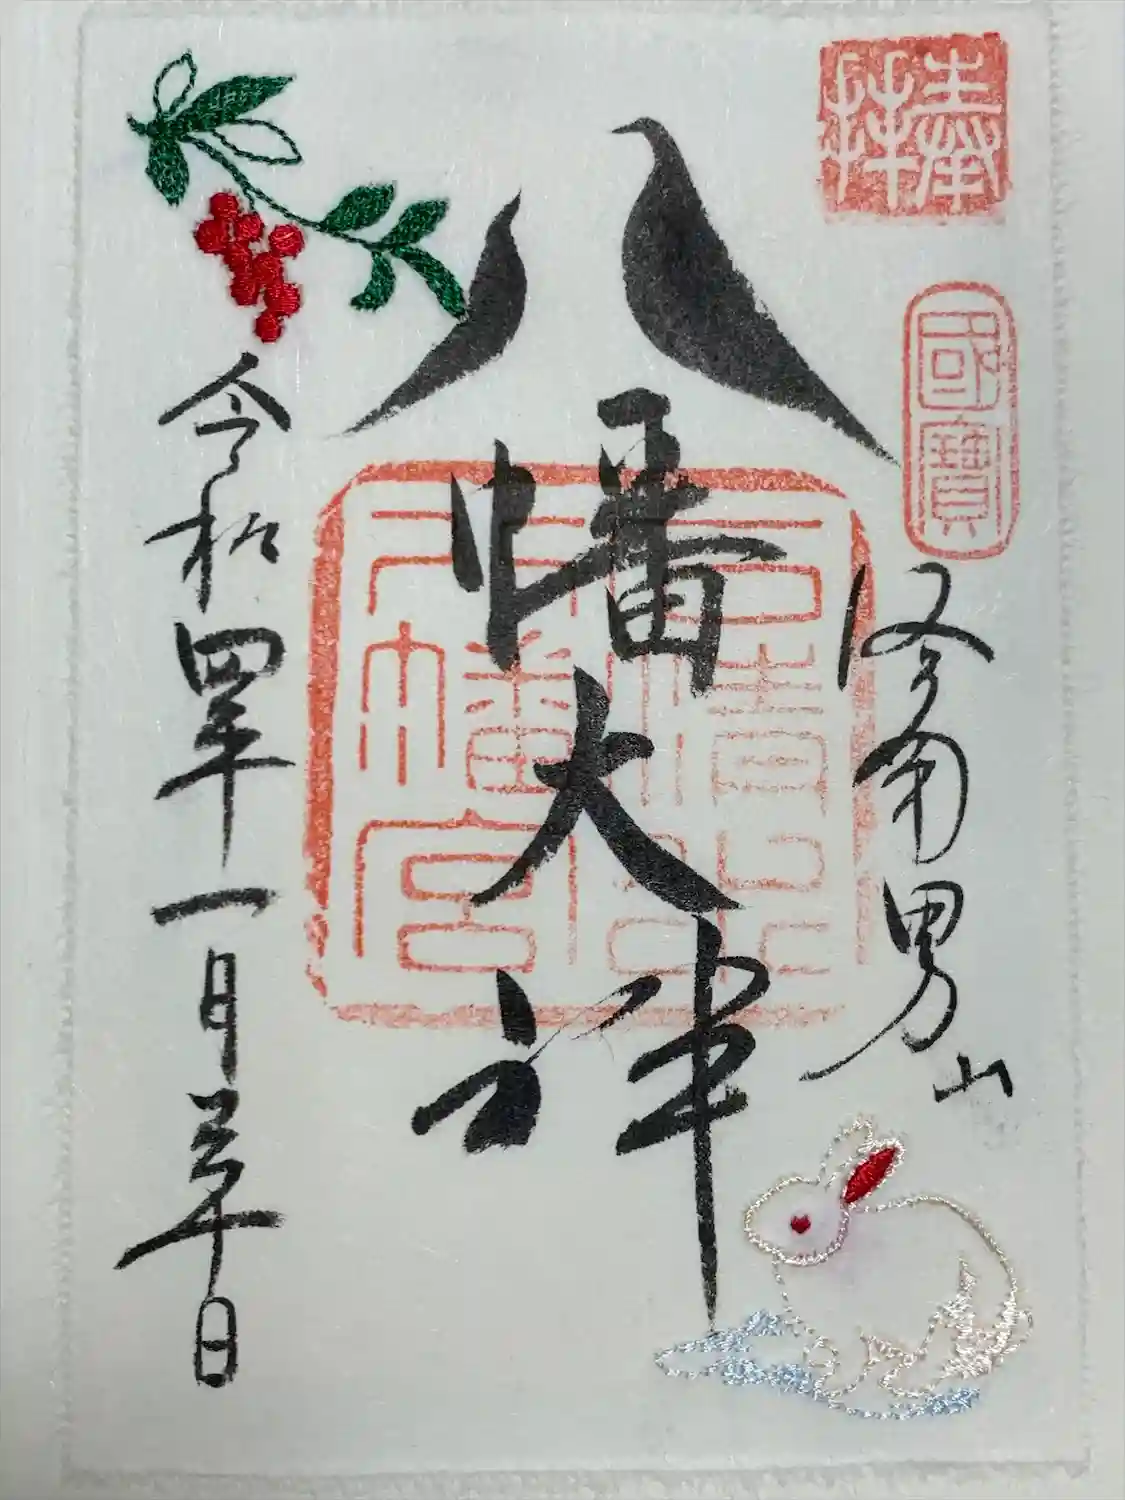 奉拝
國寶
洛南男山
八幡大神
石清水
八幡宮
令和四年一月
日